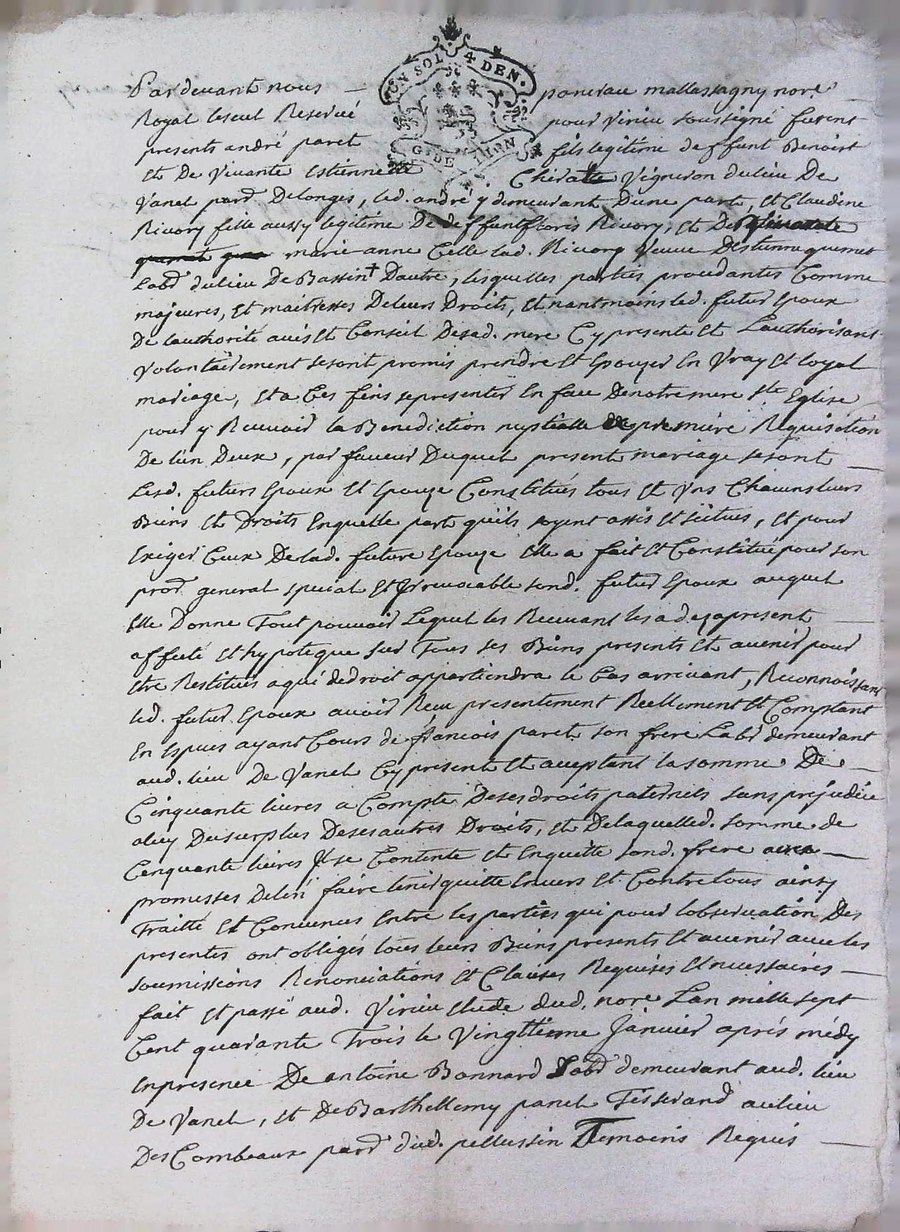 UN SOL 4 DEN.
G. DE LYON
Par devant nous poncran mallassagny nore
Royal leseul Reservé pour Virieu soussigné furent
presents andré paret fils legitime deffunt Benoist
Et De Vivante Estiennette Chirat Vigneron dulieu De
Vanel pard Delonges, led. andré y demeurant, Dune part, et Claudine
Rivory fille aussy legitime De deffunt floris Rivory, et De
marie anne Celle lad. Rivory Veuve
Labd dulieu De Bassin Dautre, lesquelles parties procedantes Comme
majeures, Et maitresses Deleurs Droits, Et nantmoins led. futur Epoux
De lauthorité avis Et Conseil Desad. mere Cy presente Et Lauthorisant
Volontairement sesont promis prendre Et Epouzer En Vray Et loyal
mariage, Et a Ces fins sepresenter En face Denotre mere Ste Eglise
pour y Recevoir la Benediction nuptialle premiere Requisition
De lun Deux, par faveur Duquel present mariage sesont
Lesd. futurs Epoux Et Epouze Constitués tous Et Uns Chacuns leurs
Biens Et Droits Enquelle part quils soyent assis Et situes, Et pour
Exiger Ceux De lad. future Epouze Elle a fait Et Constitué pour son
procr general special Et Irrevocable sond. futur Epoux auquel
Elle Donne Tout pouvoir Lequel les Recevant les a des apresent
affecté Et hypoteque sur Tous ses Biens presents Et avenir pour
Etre Restitues a qui dedroit appartiendra le Cas arrivant, Reconnoissant
led. futur Epoux avoir Receu presentement Reellement Et Comptant
En Especes ayant Cours de francois paret son frere Labr demeurant
aud. lieu De Vanel Cy present Et aceptant la somme De
Cinquante livres a Compte Desesdroits paternels sans prejudice
aluy Dusurplus Desesautres Droits, Et Delaquelled. somme de
Cenquante livres Il se Contente Et Enquitte sond. frere avec
promesses Delen faire tenir quitte Envers Et Contre tous ainsy
Traitté Et Convenus Entre les parties qui pour lobservation Des
presentes ont obliges tous leurs Biens presents Et avenir avec les
soumissions Renonciations Et Clauses Requises Et necessaires
fait Et passé aud. Virieu Etude dud. nore Lan mille sept
Cent quarante Trois le Vingttieme Janvier aprés médy
Enpresence De antoine Bonnard Labd demeurant aud. lieu
De Vanel, Et De Barthellemy panel Tisserand aulieu
Des Combeaux pard dud. pellussin Temoins Requis